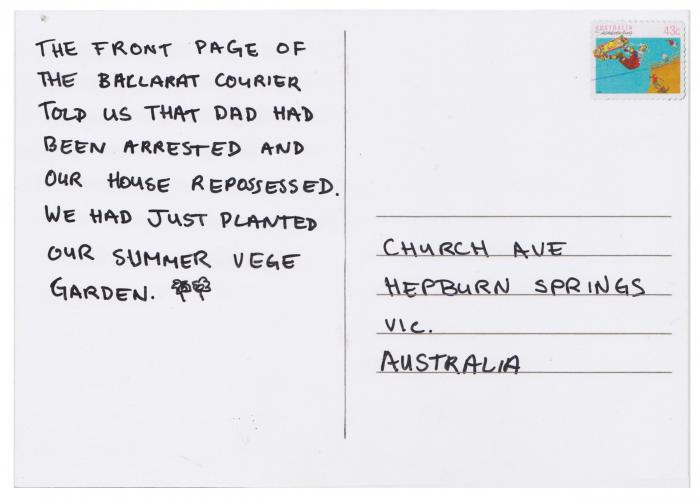 THE FRONT PAGE OF
THE BALLARAT COURIER
TOLD US THAT DAD HAD
BEEN ARRESTED AND
OUR HOUSE REPOSSESSED.
WE HAD JUST PLANTED
OUR SUMMER VEGE
GARDEN.
AUSTRALIA 43c
CHURCH AVE
HEPBURN SPRINGS
VIC.
AUSTRALIA